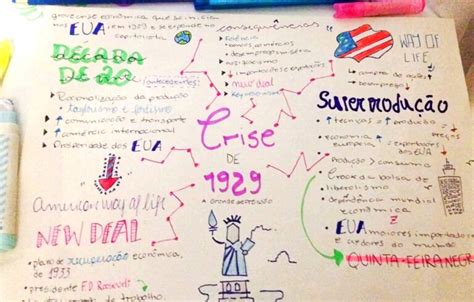 grave crise econômica que se iniciou
nos EUA em 1929 e se expande no
capitalista
DÉCADA
DE 20
Racionalização da produção
Taylorismo e fordismo
↑ comunicação e transporte
↑ comércio internacional
Prosperidade dos EUA
American way of life
NEW DEAL
plano de recuperação econômica,
de 1933
presidente F.D. Roosevelt
de trabalho.
consequências
falência
desemprego
new deal
Crise
DE
1929
A Grande depressão
WAY OF
LIFE
compra de ações
desemprego
Superprodução
↑ tecnologia ↑ produção
↓ preços
economia europeia
↓ exportações
dos EUA
Produção > consumo
Crack da bolsa de
liberalismo
dependência mundial
econômica
EUA maiores importadores
e credores do mundo
QUINTA-FEIRA NEGRA